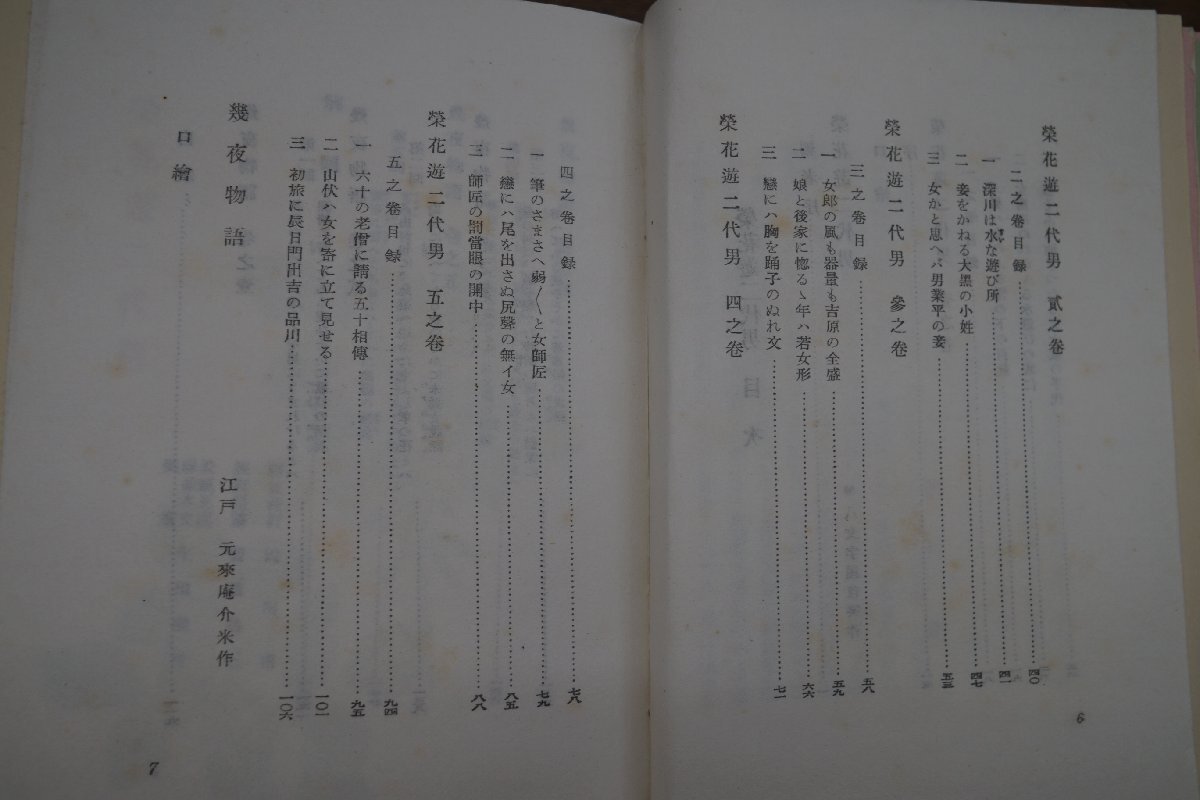 榮花遊二代男　貳之卷
二之卷目録……四〇
一　深川は水な遊び所……四一
二　妾をかねる大黑の小姓……四七
三　女かと思へバ男業平の妾……五三
榮花遊二代男　參之卷
三之卷目録……五八
一　女郎の風も器量も吉原の全盛……五九
二　娘と後家に惚るゝ年ハ若女形……六六
三　戀にハ胸を踊子のぬれ文……七一
榮花遊二代男　四之卷
6
四之卷目録……七八
一　筆のさまさへ弱〱と女師匠……七九
二　戀にハ尾を出さぬ尻聲の無イ女……八五
三　師匠の罰當眼の開中……八八
榮花遊二代男　五之卷
五之卷目録……九四
一　六十の老僧に請る五十相傳……九五
二　山伏ハ女を寄に立て見せる……一〇一
三　初旅に辰日門出吉の品川……一〇六
幾夜物語　江戸　元來庵介米作
口繪
7